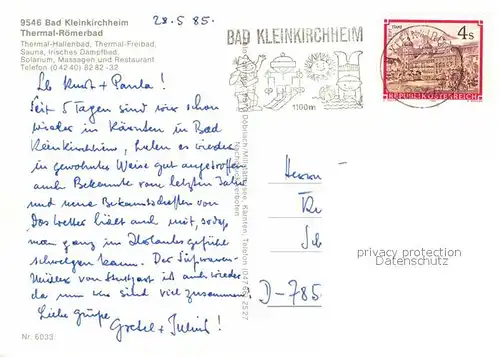 9546 Bad Kleinkirchheim
Thermal-Römerbad
Thermal-Hallenbad, Thermal-Freibad,
Sauna, Irisches Dampfbad,
Solarium, Massagen und Restaurant
Telefon (0 42 40) 82 82-32
28.5.85.
BAD KLEINKIRCHHEIM
1100m
4s
REPUBLIK ÖSTERREICH
Lb Kurt + Paula!
Seit 5 Tagen sind wir schon
wieder in Kärnten in Bad
Kleinkirchheim, haben es wieder
in gewohnter Weise gut angetroffen
auch Bekannte vom letzten Jahr
und neue Bekanntschaften
Das Wetter hält auch mit, sodaß
man ganz im Urlaubsgefühl
schwelgen kann. Der Süßwaren-
von Stuttgart ist auch wieder
da und wir sind viel zusammen.
Liebe Grüße
Gretel + Julius!
Herrn
D-785
privacy protection
Datenschutz
Nr. 6033